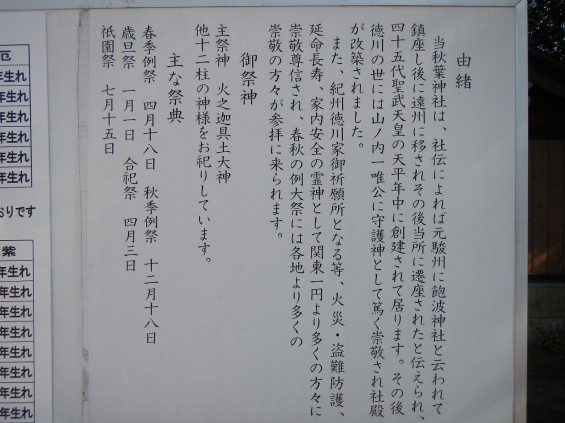 由緒
当秋葉神社は、社伝によれば元駿州に飽波神社と云われて
鎮座し後に遠州に移されその後当所に遷座されたと伝えられ、
四十五代聖武天皇の天平年中に創建されて居ります。その後
徳川の世には山ノ内一唯公に守護神として篤く崇敬され社殿
が改築されました。
また、紀州徳川家御祈願所となる等、火災・盗難防護、
延命長寿、家内安全の霊神として関東一円より多くの方々に
崇敬尊信され、春秋の例大祭には各地より多くの
崇敬の方々が参拝に来られます。
御祭神
主祭神 火之迦具土大神
他十二柱の神様をお祀りしています。
主な祭典
春季例祭 四月十八日 秋季例祭 十二月十八日
歳旦祭 一月一日 合祀祭 四月三日
祇園祭 七月十五日
厄
年生れ
年生れ
年生れ
年生れ
年生れ
おりです
紫
年生れ
年生れ
年生れ
年生れ
年生れ
年生れ